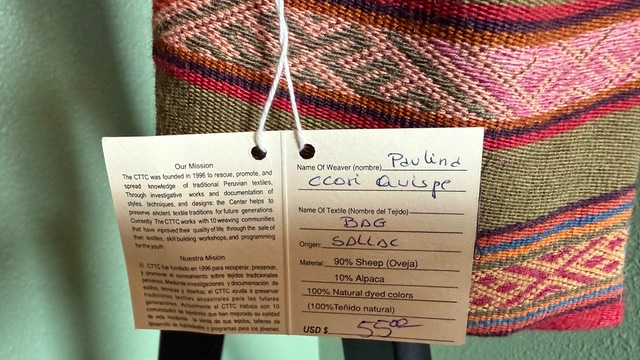 Our Mission
The CTTC was founded in 1996 to rescue, promote, and
spread knowledge of traditional Peruvian textiles,
Through investigative works and documentation of
styles, techniques, and designs; the Center helps to
preserve ancient textile traditions for future generations
Currently The CTTC works with 10 weaving communities
that have improved their quality of life through the sale of
their textiles, skill building workshops, and programming
for the youth.
Nuestra Misión
El CTTC fue fundado en 1996 para recuperar, preservar,
y promover el conocimiento sobre tejidos tradicionales
peruanos. Mediante investigaciones y documentación de
estilos, técnicas y diseños; el CTTC ayuda a preservar
tradiciones textiles ancestrales para las futuras
generaciones. Actualmente el CTTC trabaja con 10
comunidades de tejedores que han mejorado su calidad
de vida mediante la venta de sus tejidos, talleres de
desarrollo de habilidades y programas para los jóvenes
Name Of Weaver (nombre) Paulina
Ccori Quispe
Name Of Textile (Nombre del Tejido)
BAG
Origen: SALLAC
Material: 90% Sheep (Oveja)
10% Alpaca
100% Natural dyed colors
(100%Teñido natural)
USD $ 55.00